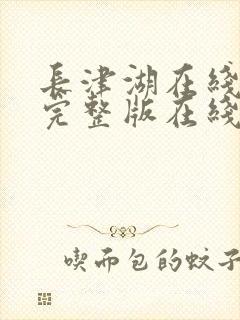 長津湖在綫
完整版在綫
喫面包的蚊子